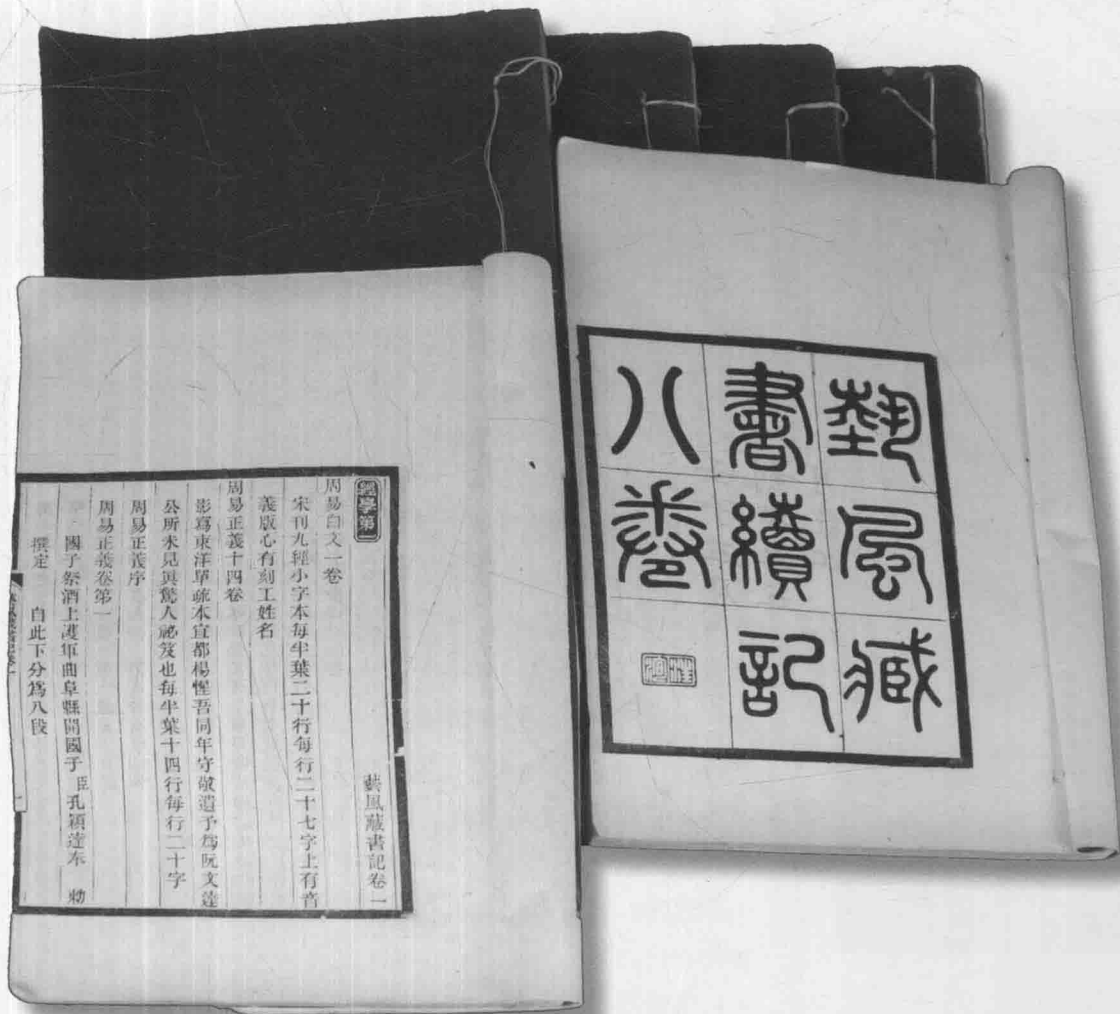 經學第一
藝風藏書記卷一
周易白文一卷
宋刊九經小字本每半葉二十行每行二十七字上有音
義版心有刻工姓名
周易正義十四卷
影寫東洋單疏本宜都楊惺吾同年守敬遺予爲阮文達
公所未見眞驚人祕笈也每半葉十四行每行二十字
周易正義序
周易正義卷第一
國子祭酒上護軍曲阜縣開國子臣孔穎達奉 勅
撰定 自此下分爲八段
藝風臧
書續記
八卷